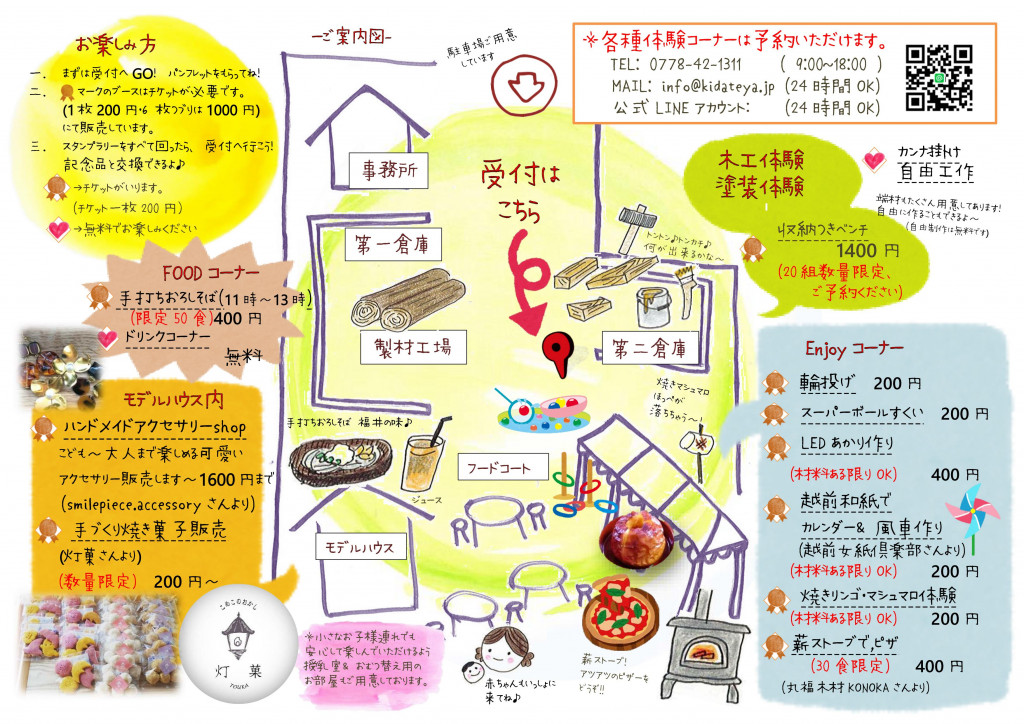 お楽しみ方
一. まずは受付へGO! パンフレットをもらってね!
二. マークのブースはチケットが必要です。
(1枚200円・6枚つづりは1000円)
にて販売しています。
三. スタンプラリーをすべて回ったら、受付へ行こう!
記念品と交換できるよ♪
→チケットがいります。
(チケット一枚200円)
→無料でお楽しみください
FOODコーナー
手打ちおろしそば(11時~13時)
(限定50食)400円
ドリンクコーナー
無料
モデルハウス内
ハンドメイドアクセサリーshop
こども~大人まで楽しめる可愛い
アクセサリー販売します~1600円まで
(smilepiece.accessoryさんより)
手づくり焼き菓子販売
(灯菓さんより)
(数量限定) 200円~
このこのおかし
灯菓
TOUKA
-ご案内図-
駐車場ご用意
しています
事務所
第一倉庫
製材工場
受付は
こちら
トントン♪トンカチ♪
何が出来るかな~
第二倉庫
手打ちおろしそば 福井の味♪
ジュース
フードコート
焼きマシュマロ
ほっぺが
落ちちゃう~!
モデルハウス
※小さなお子様連れでも
安心して楽しんでいただけるよう
授乳室&おむつ替え用の
お部屋もご用意しております。
赤ちゃんもいっしょに
来てね♪
薪ストーブ!
アツアツのピザーを
どうぞ!!
※各種体験コーナーは予約いただけます。
TEL: 0778-42-1311 (9:00~18:00)
MAIL: info@kidateya.jp (24時間OK)
公式LINEアカウント: (24時間OK)
木工体験
塗装体験
カンナ掛け
自由工作
端材もたくさん用意してあります!
自由に作ることもできるよ~
(自由制作は無料です)
収納つきベンチ
1400円
(20組数量限定、
ご予約ください)
Enjoyコーナー
輪投げ 200円
スーパーボールすくい 200円
LEDあかり作り
(材料ある限りOK) 400円
越前和紙で
カレンダー& 風車作り
(越前女紙倶楽部さんより)
(材料ある限りOK) 200円
焼きリンゴ・マシュマロ体験
(材料ある限りOK) 200円
薪ストーブで,ピザ
(30食限定) 400円
(丸福木材KONOKAさんより)